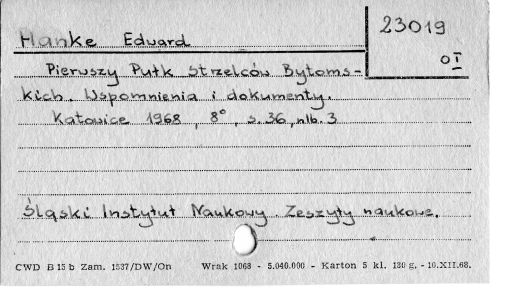 Hanke Eduard
23019
OI
Pierwszy Pułk Strzelców Bytoms-
kich. Wspomnienia i dokumenty.
Katowice 1968, 8°, s. 36, nlb. 3
Śląski Instytut Naukowy. Zeszyty naukowe.
CWD B 15 b Zam. 1537/DW/On Wrak 1068 - 5.040.000 - Karton 5 kl. 130 g. - 10.XII.68.